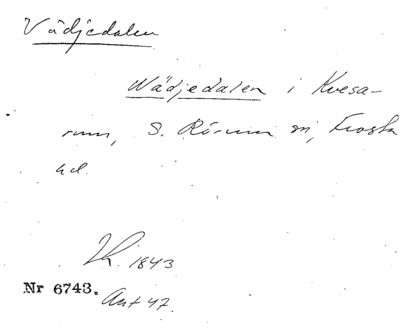 Vädjedalen
Wädjedalen i Kvesa-
rum, S. Rörum sn, Frosta
hd.
1843
Nr 6743.
Ant 47.